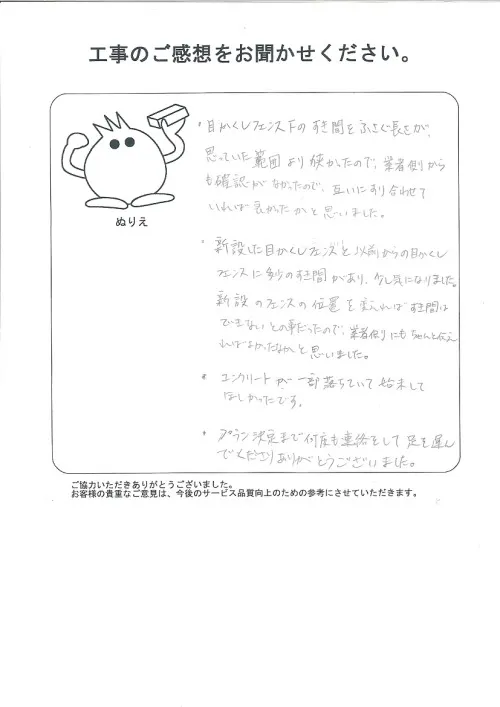 工事のご感想をお聞かせください。
ぬりえ
・目かくしフェンス下のすき間をふさぐ長さが、
思っていた範囲より狭かったので、業者側から
も確認がなかったので、互いにすり合わせて
いれば良かったかと思いました。
・新設した目かくしフェンスと以前からの目かくし
フェンスに多少のすき間があり、少し気になりました。
新設のフェンスの位置を変えればすき間は
できないとの事だったので、業者側にもちゃんと伝え
ればよかったなかと思いました。
・コンクリートが一部落ちていて始末して
ほしかったです。
・プラン決定まで何度も連絡をして足を運ん
でくださりありがとうございました。
ご協力いただきありがとうございました。
お客様の貴重なご意見は、今後のサービス品質向上のための参考にさせていただきます。